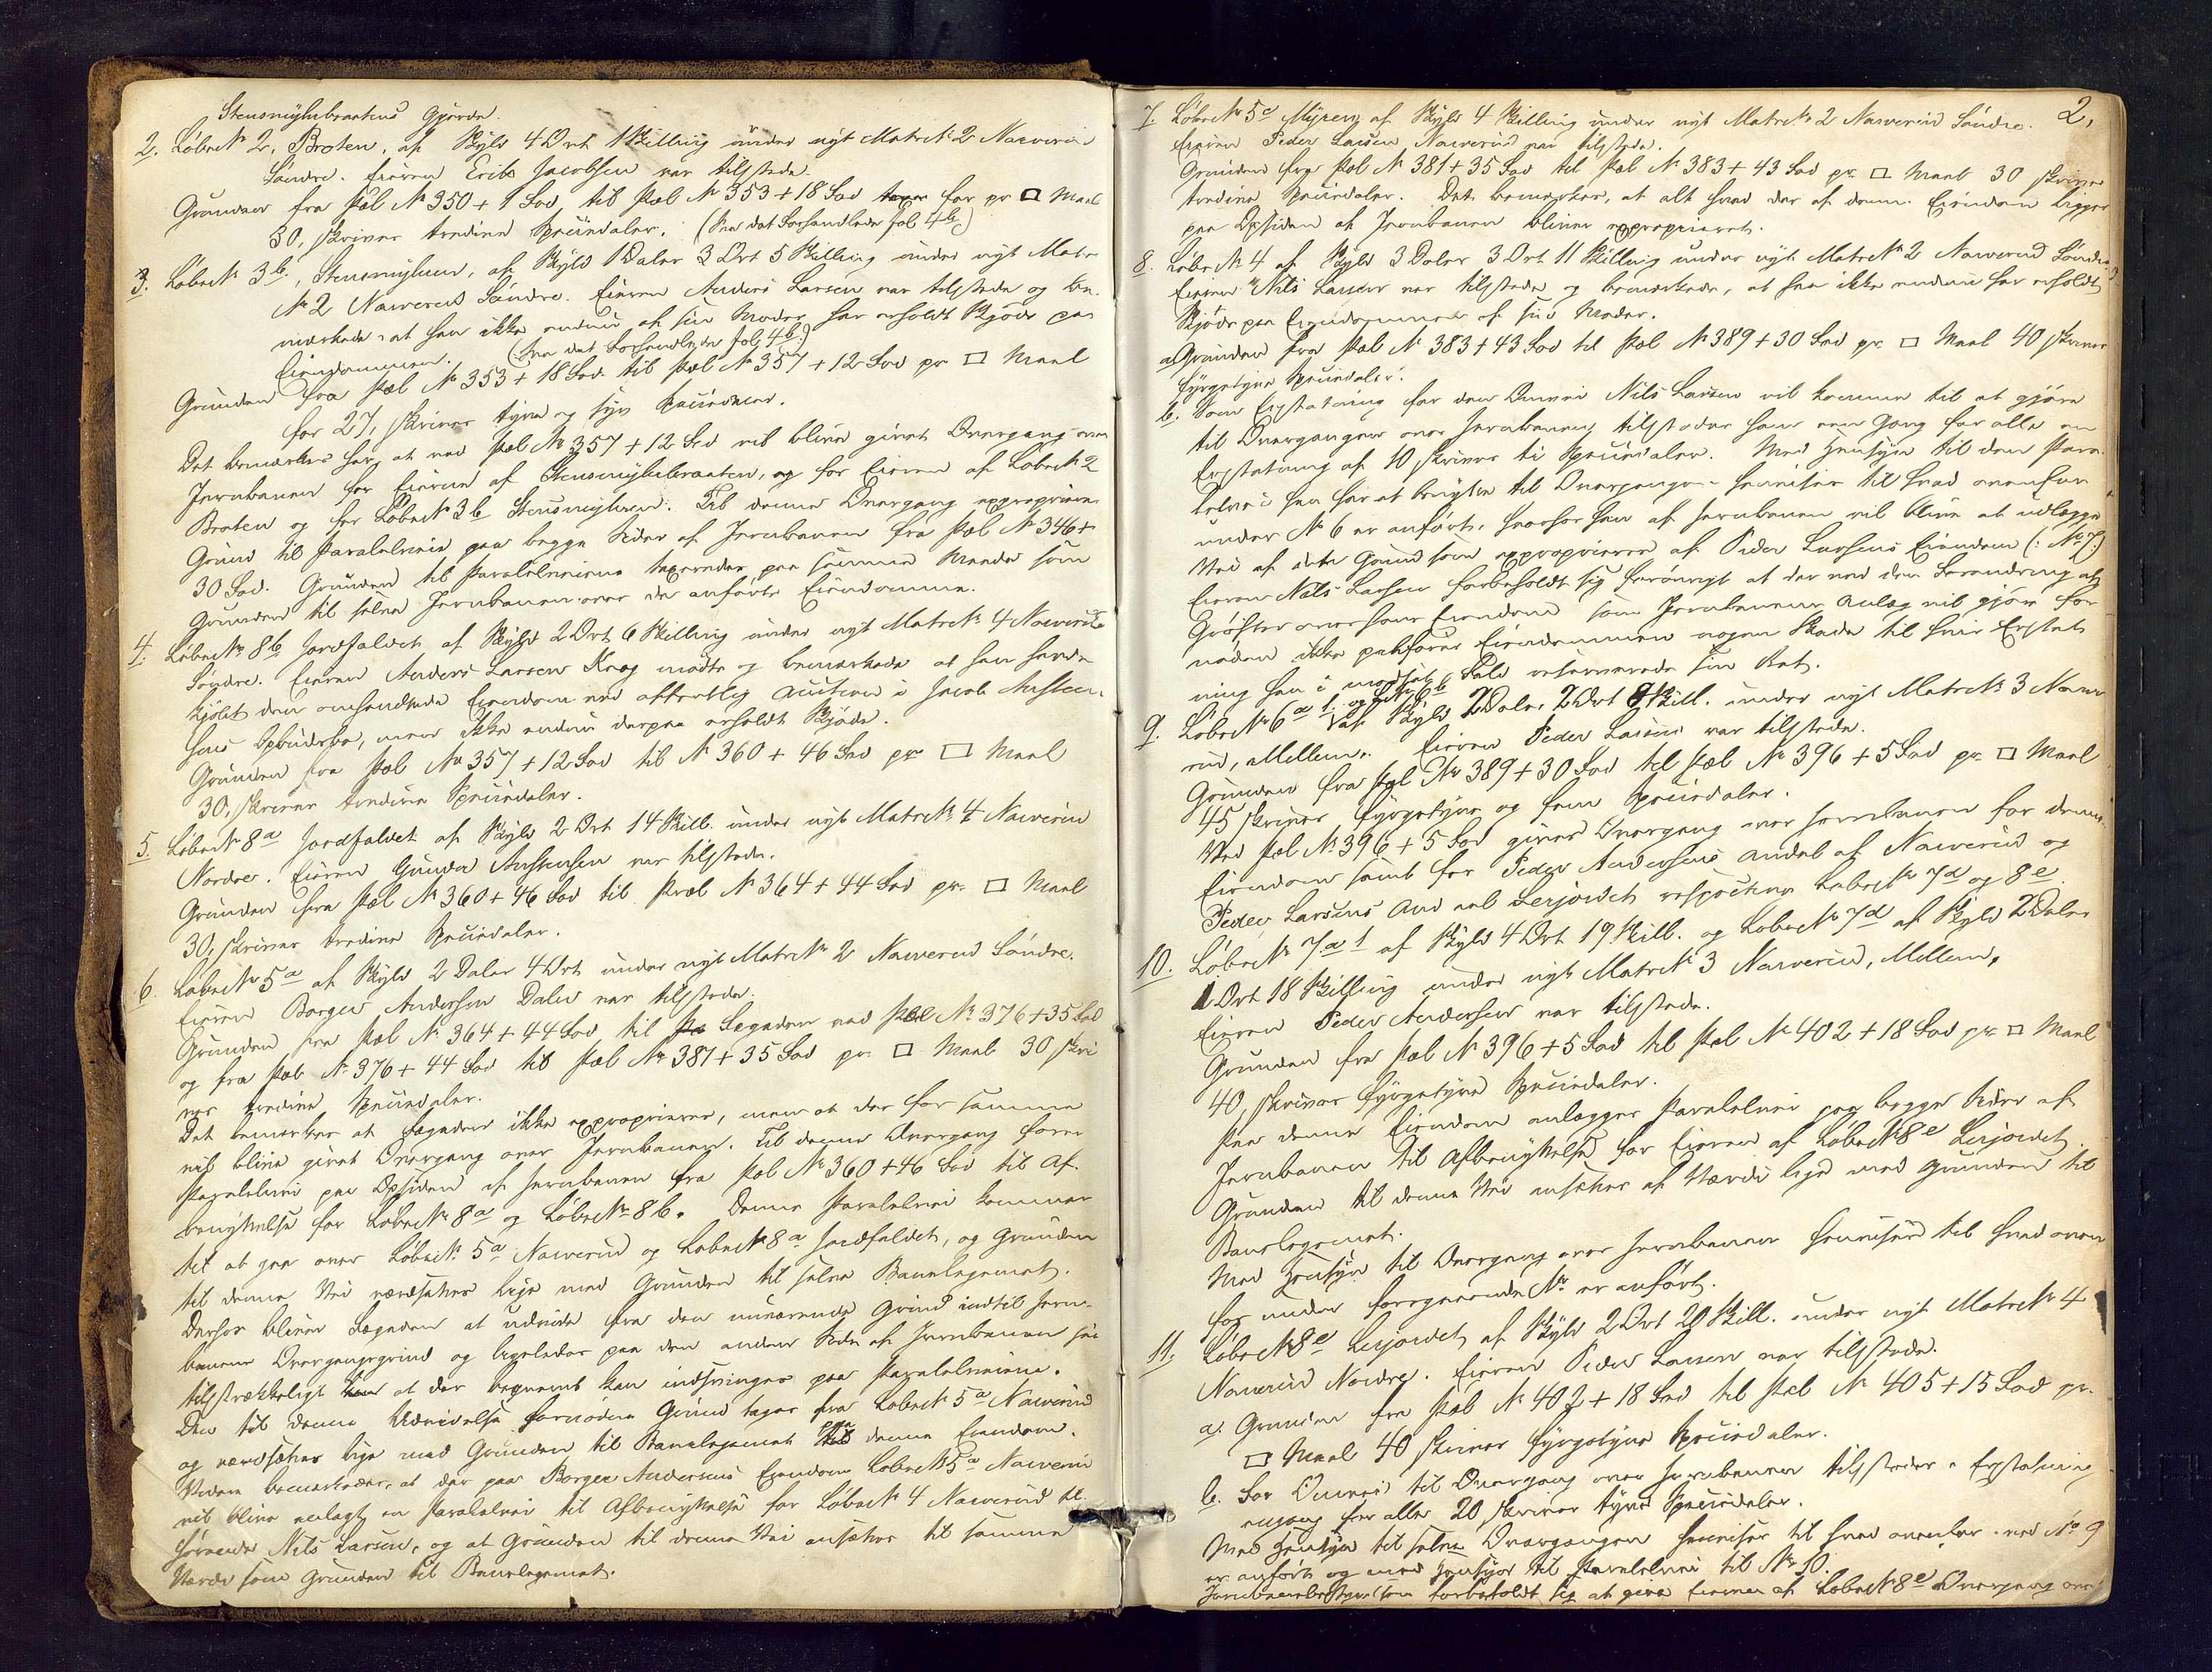 Stensmyhrbraatens Gjærde.
2. Løbe No 2, Braten, af Skyld 4 Ort 1 Skilling under nyt Matr No 2 Narverud
Søndre. Eieren Erik Jacobsen var tilstede.
Grunden fra Pæl No 350 + 1 Fod til Pæl No 353 + 18 Fod for pr □ Maal
30, skriver tredive Speciedaler. (Se det Forhandlede fol 4b)
3. Løbe No 3b, Stensmyhren, af Skyld 1 Daler 3 Ort 5 Skilling under nyt Matr
No 2 Narverud Søndre. Eieren Anders Larsen var tilstede og be-
mærkede at han ikke endnu af sin Moder har erholdt Skjøde paa
Eiendommen. (Se det Forhandlede fol 4b.)
Grunden fra Pæl No 353 + 18 Fod til Pæl No 357 + 12 Fod pr □ Maal
for 27, skriver tyve og syv Speciedaler.
Det bemærkes her, at ved Pæl No 357 + 12 Fod vil blive givet Overgang over
Jernbanen for Eieren af Stensmyhrbraaten, og for Eieren af Løbe No 2
Braten og for Løbe No 3b Stensmyhren. Til denne Overgang exproprieres
Grund til Paralelveie paa begge Sider af Jernbanen fra Pæl No 346 +
30 Fod. Grunden til Paralelveiene taxeredes paa samme Maade som
Grunden til selve Jernbanen over de anførte Eiendomme.
4. Løbe No 8b Jordfaldet af Skyld 2 Ort 6 Skilling under nyt Matr No 4 Narverud
Søndre. Eieren Anders Larsen Krog mødte og bemærkede at han havde
kjøbt den omhandlede Eiendom ved offentlig Auction i Jacob Austen-
sens Opbudsbo, men ikke endnu derpaa erholdt Skjøde.
Grunden fra Pæl No 357 + 12 Fod til No 360 + 46 Fod pr □ Maal
30, skriver tredive Speciedaler.
5. Løbe No 8a Jordfaldet af Skyld 2 Ort 14 Skill. under nyt Matr No 4 Narverud
Nordre. Eieren Gunder Austensen var tilstede.
Grunden fra Pæl No 360 + 46 Fod til Pæl No 364 + 44 Fod pr □ Maal
30, skriver tredive Speciedaler.
6. Løbe No 5a af Skyld 2 Daler 4 Ort under nyt Matr No 2 Narverud Søndre.
Eieren Borger Andersen Dalen var tilstede.
Grunden fra Pæl No 364 + 44 Fod til Fægaden ved Pæl No 376 + 35 Fod
og fra Pæl No 376 + 44 Fod til Pæl No 381 + 35 Fod pr □ Maal 30 skri
ver tredive Speciedaler.
Det bemærkes at Fægaden ikke exproprieres, men at der for samme
vil blive givet Overgang over Jernbanen. Til denne Overgang fører
Paralelvei paa Opsiden af Jernbanen fra Pæl No 360 + 46 Fod til Af-
benyttelse for Løbe No 8a og Løbe No 8b. Denne Paralelvei kommer
til at gaa over Løbe No 5a Narverud og Løbe No 8a Jordfaldet, og Grunden
til denne Vei værdsættes lige med Grunden til selve Banelegemet.
Derfor bliver Fægaden at udvide fra den nuværende Grind indtil Jern-
banens Overgangsgrind og ligeledes paa den anden Side af Jernbanen saa
tilstrækkeligt at der bequemt kan indsvinges paa Paralelveiene.
Den til denne Udvidelse fornødne Grund tages fra Løbe No 5a Narverud
og værdsættes lige med Grunden til Banelegemet paa denne Eiendom.
Videre bemærkedes, at der paa Borger Andersens Eiendom Løbe No 5a Narverud
vil blive anlagt en Paralelvei til Afbenyttelse for Løbe No 4 Narverud til-
hørende Nils Larsen, og at Grunden til denne Vei ansættes til samme
Værdi som Grunden til Banelegemet.
2,
7. Løbe No 5c Myren af Skyld 4 Skilling under nyt Matr No 2 Narverud Søndre.
Eieren Peder Larsen Narverud var tilstede.
Grunden fra Pæl No 381 + 35 Fod til Pæl No 383 + 43 Fod pr □ Maal 30 skriver
tredive Speciedaler. Det bemærkes, at alt hvad der af denne Eiendom ligger
paa Opsiden af Jernbanen bliver exproprieret.
8. Løbe No 4 af Skyld 3 Daler 3 Ort 11 Skilling under nyt Matr No 2 Narverud Søndre
Eieren Nils Larsen var tilstede og bemærkede, at han ikke endnu har erholdt
Skjøde paa Eiendommen af sin Moder.
a. Grunden fra Pæl No 383 + 43 Fod til Pæl No 389 + 30 Fod pr □ Maal 40 skriver
fyrgetyve Speciedaler.
b. Som Erstatning for den Omvei Nils Larsen vil komme til at gjøre
til Overgangen over Jernbanen, tilstodes ham een Gang for alle en
Erstatning af 10 skriver ti Speciedaler. Med Hensyn til den Para-
lelvei han har at benytte til Overgangen henvises til hvad ovenfor
under No 6 er anført, hvorhos han af Jernbanen vil blive at udlægge
Vei af det Grund som exproprieres af Peder Larsens Eiendom (: No 7:)
Eieren Nils Larsen forbeholdt sig forøvrigt at der ved den Forandring af
Grøfter over hans Eiendom som Jernbanens Anlæg vil gjøre for-
nøden ikke paaføres Eiendommen nogen Skade til hvis Erstat-
ning han i modsat Fald reserverede sin Ret.
9. Løbe No 6a 1. og Løbe No 6b af Skyld 2 Daler 2 Ort 8 Skill. under nyt Matr No 3 Narve
rud, Mellem. Eieren Peder Larsen var tilstede.
Grunden fra Pæl No 389 + 30 Fod til Pæl No 396 + 5 Fod pr □ Maal
45 skriver fyrgetyve og fem Speciedaler.
Ved Pæl No 396 + 5 Fod gives Overgang over Jernbanen for denne
Eiendom samt for Peder Andersens Andel af Narverud og
Peder Larsens Andeel Lerjordet respective Løbe No 7d og 8e.
10. Løbe No 7a 1 af Skyld 4 Ort 19 Skill. og Løbe No 7d af Skyld 2 Daler
1 Ort 18 Skilling under nyt Matr No 3 Narverud, Mellem.
Eieren Peder Andersen var tilstede.
Grunden fra Pæl No 396 + 5 Fod til Pæl No 402 + 18 Fod pr □ Maal
40, skriver fyrgetyve Speciedaler.
Paa denne Eiendom anlægges Paralelvei paa begge Sider af
Jernbanen til Afbenyttelse for Eieren af Løbe No 8e Lerjordet.
Grunden til denne Vei ansættes af Værdi lige med Grunden til
Banelegemet.
Med Hensyn til Overgang over Jernbanen henvises til hvad oven
for under foregaaende No er anført.
11. Løbe No 8e Lerjordet, af Skyld 2 Ort 20 Skill. under nyt Matr No 4
Narverud Nordre. Eieren Peder Larsen var tilstede.
a. Grunden fra Pæl No 402 + 18 Fod til Pæl No 405 + 15 Fod pr.
□ Maal 40 skriver fyrgetyve Speciedaler.
b. For Omvei til Overgang over Jernbanen tilstodes i Erstatning
engang for alle 20 skriver tyve Speciedaler.
Med Hensyn til selve Overgangen henvises til hvad ovenfor ved No 9
er anført og med Hensyn til Paralelvei til No 10.
Jernbanebestyrelsen forbeholdt sig at give Eieren af Løbe No 8e Overgang over